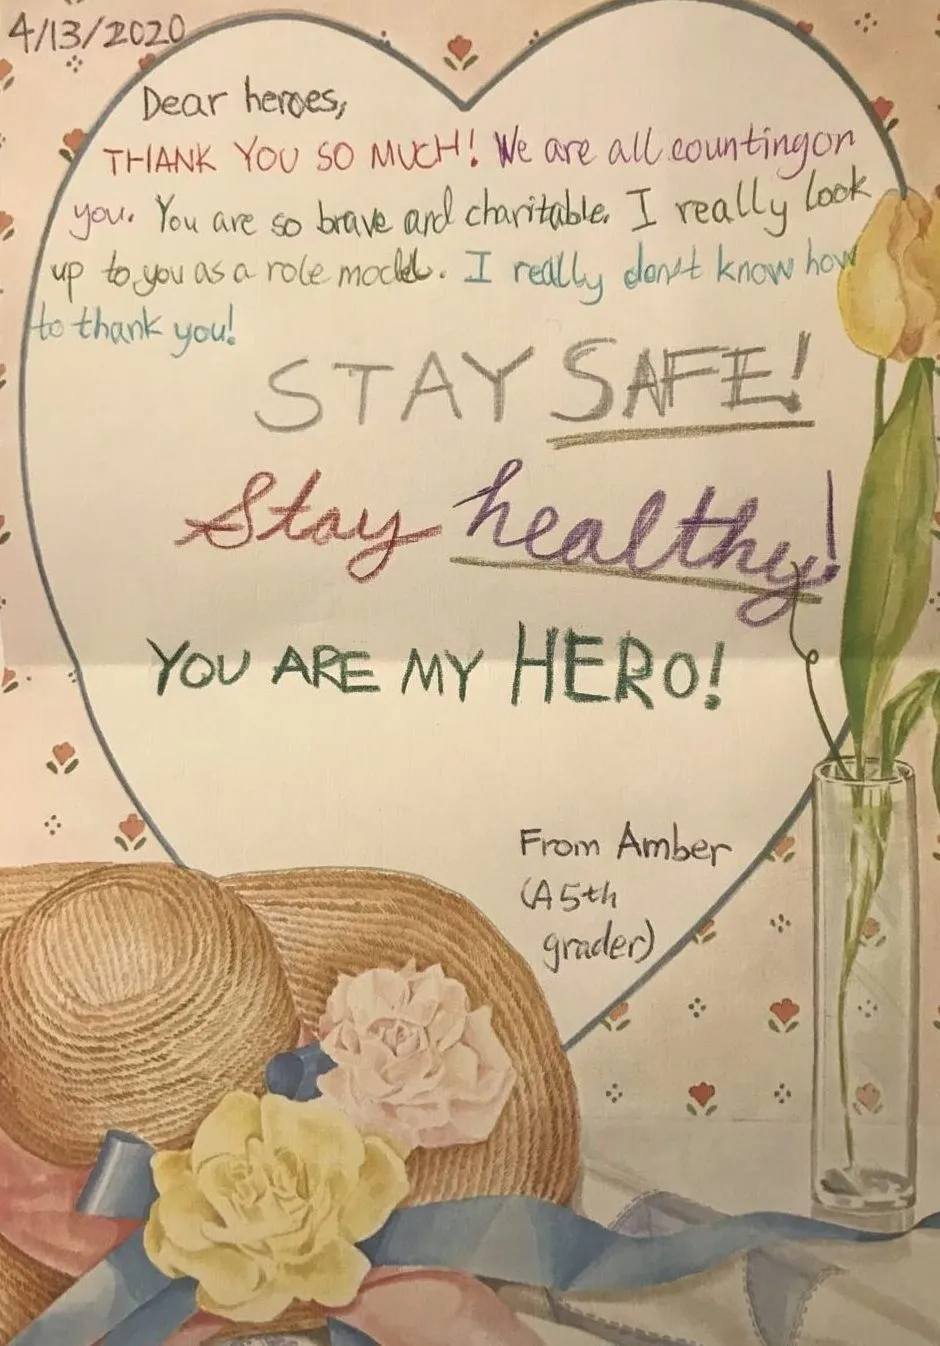 4/13/2020
Dear heroes,
THANK YOU SO MUCH! We are all counting on
you. You are so brave and charitable. I really look
up to you as a role model. I really don't know how
to thank you!
STAY SAFE!
Stay healthy!
YOU ARE MY HERO!
From Amber
(A 5th
grader)